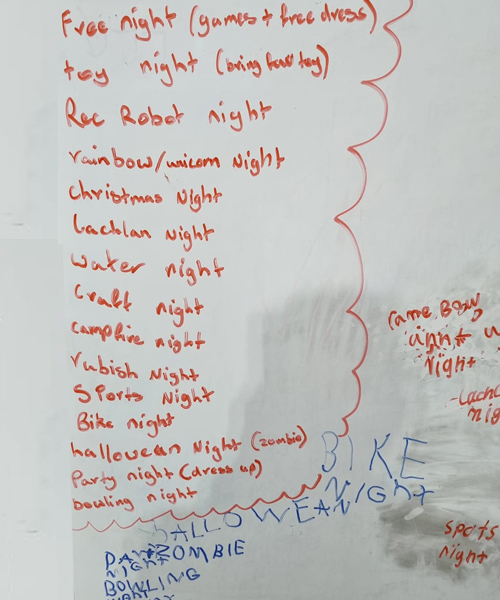 Free night (games + free dress)
toy night (bring fav toy)
Rec Robot night
rainbow/unicorn Night
Christmas Night
Lachlan Night
Water night
Craft night
campfire night
rubish Night
Sports Night
Bike night
hallowean Night (zombie)
Party night (dress up)
bowling night
BIKE
NIGHT
HALLOWEAN
ZOMBIE
NIGHT
BOWLING
night
spots
night